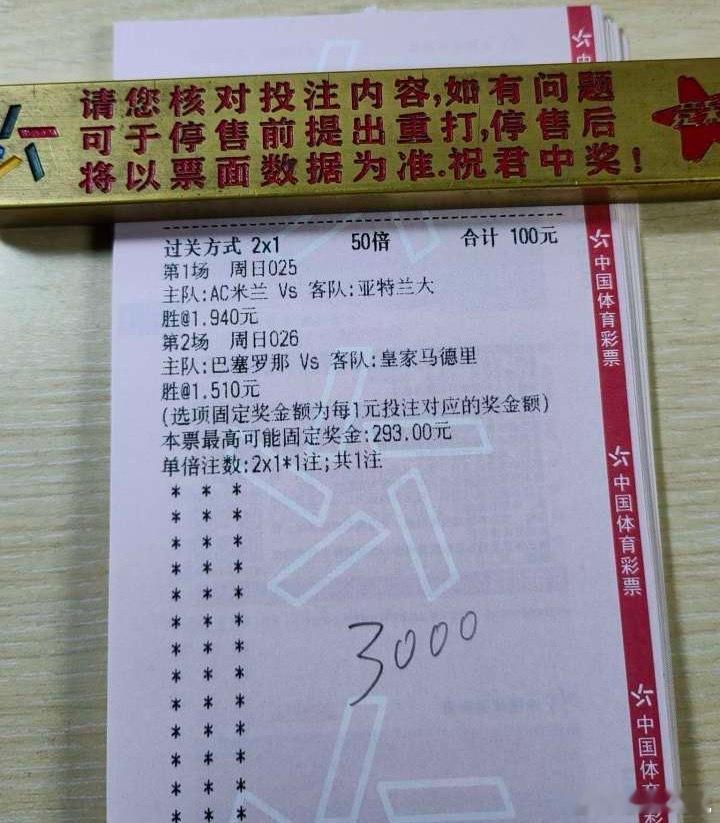 请您核对投注内容,如有问题
可于停售前提出重打,停售后
将以票面数据为准.祝君中奖!
过关方式 2x1 50倍 合计 100元
第1场 周日025
主队:AC米兰 Vs 客队:亚特兰大
胜@1.940元
第2场 周日026
主队:巴塞罗那 Vs 客队:皇家马德里
胜@1.510元
(选项固定奖金额为每1元投注对应的奖金额)
本票最高可能固定奖金:293.00元
单倍注数:2x1*1注;共1注
* * *
* * *
* * *
* * *
* * *
* * *
* * *
* * *
* * *
* * *
* * *
* * *
* * *
3000
中国体育彩票
中国体育彩票
中国体育彩